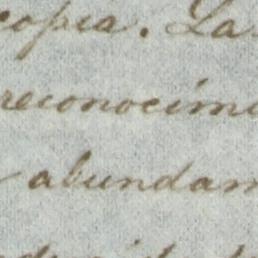 copia. La
reconocimi
abundam